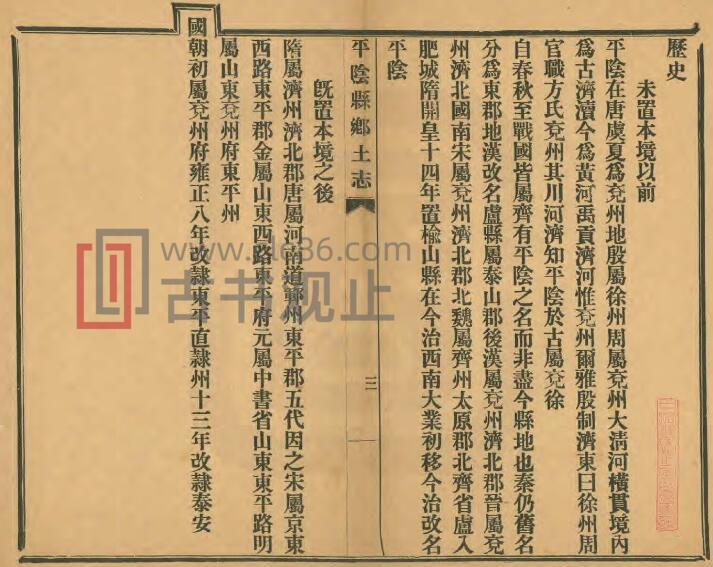 歷史
未置本境以前
平陰在唐虞夏爲兗州地殷屬徐州周屬兗州大淸河橫貫境內
爲古濟瀆今爲黃河禹貢濟河惟兗州爾雅殷制濟東曰徐州周
官職方氏兗州其川河濟知平陰於古屬兗徐
自春秋至戰國皆屬齊有平陰之名而非盡今縣地也秦仍舊名
分爲東郡地漢改名盧縣屬泰山郡後漢屬兗州濟北郡晉屬兗
州濟北國南宋屬兗州濟北郡北魏屬齊州太原郡北齊省盧入
肥城隋開皇十四年置楡山縣在今治西南大業初移今治改名
平陰
平陰縣鄉土志
三
旣置本境之後
隋屬濟州濟北郡唐屬河南道鄆州東平郡五代因之宋屬京東
西路東平郡金屬山東西路東平府元屬中書省山東東平路明
屬山東兗州府東平州
國朝初屬兗州府雍正八年改隸東平直隸州十三年改隸泰安
www.dfe86.com
古书观止